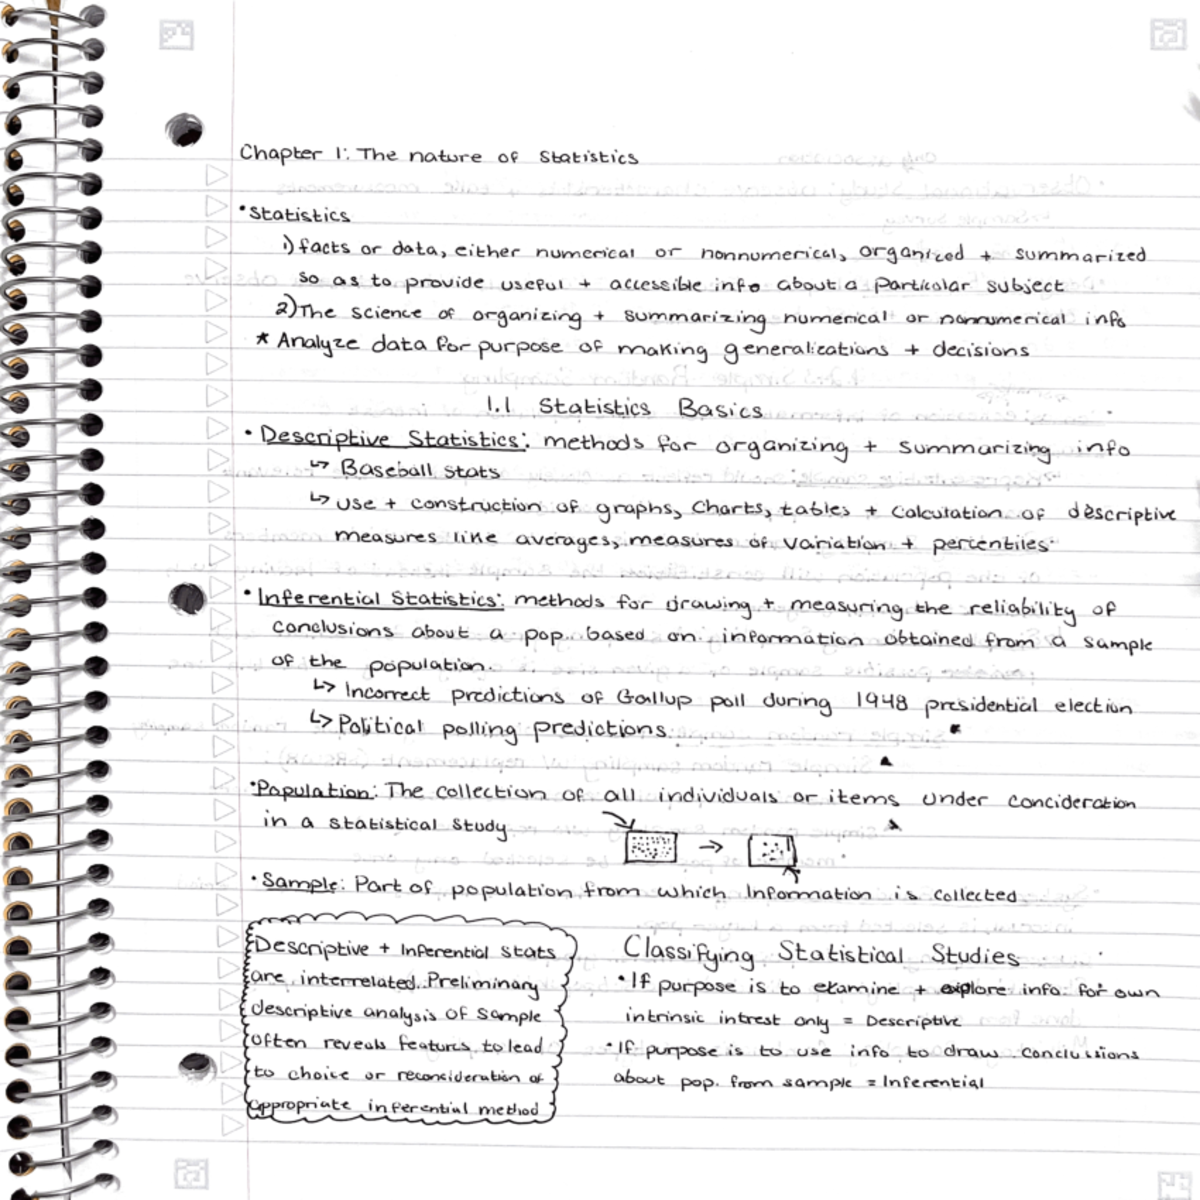 Chapter 1: The nature of Statistics
•Statistics
1) facts or data, either numerical or nonnumerical, organized + summarized
so as to provide useful + accessible info about a particular subject
2) The science of organizing + summarizing numerical or nonnumerical info
* Analyze data for purpose of making generalizations + decisions
1.1 Statistics Basics
• Descriptive Statistics: methods for organizing + summarizing info
↳ Baseball stats
↳ use + construction of graphs, Charts, tables + Calculation of descriptive
measures like averages, measures of variation + percentiles
• Inferential Statistics: methods for drawing + measuring the reliability of
conclusions about a pop. based on information obtained from a sample
of the population.
↳ Incorrect predictions of Gallup poll during 1948 presidential election
↳ Political polling predictions
•Population: The collection of all individuals or items under concideration
in a statistical study
→
•Sample: Part of population from which Information is collected
Descriptive + Inferential Stats
are interrelated. Preliminary
descriptive analysis of sample
often reveals features to lead
to choice or reconsideration of
appropriate inferential method
Classifying Statistical Studies
•If purpose is to examine + explore info. for own
intrinsic intrest only = Descriptive
•If purpose is to use info to draw conclusions
about pop. from sample = Inferential